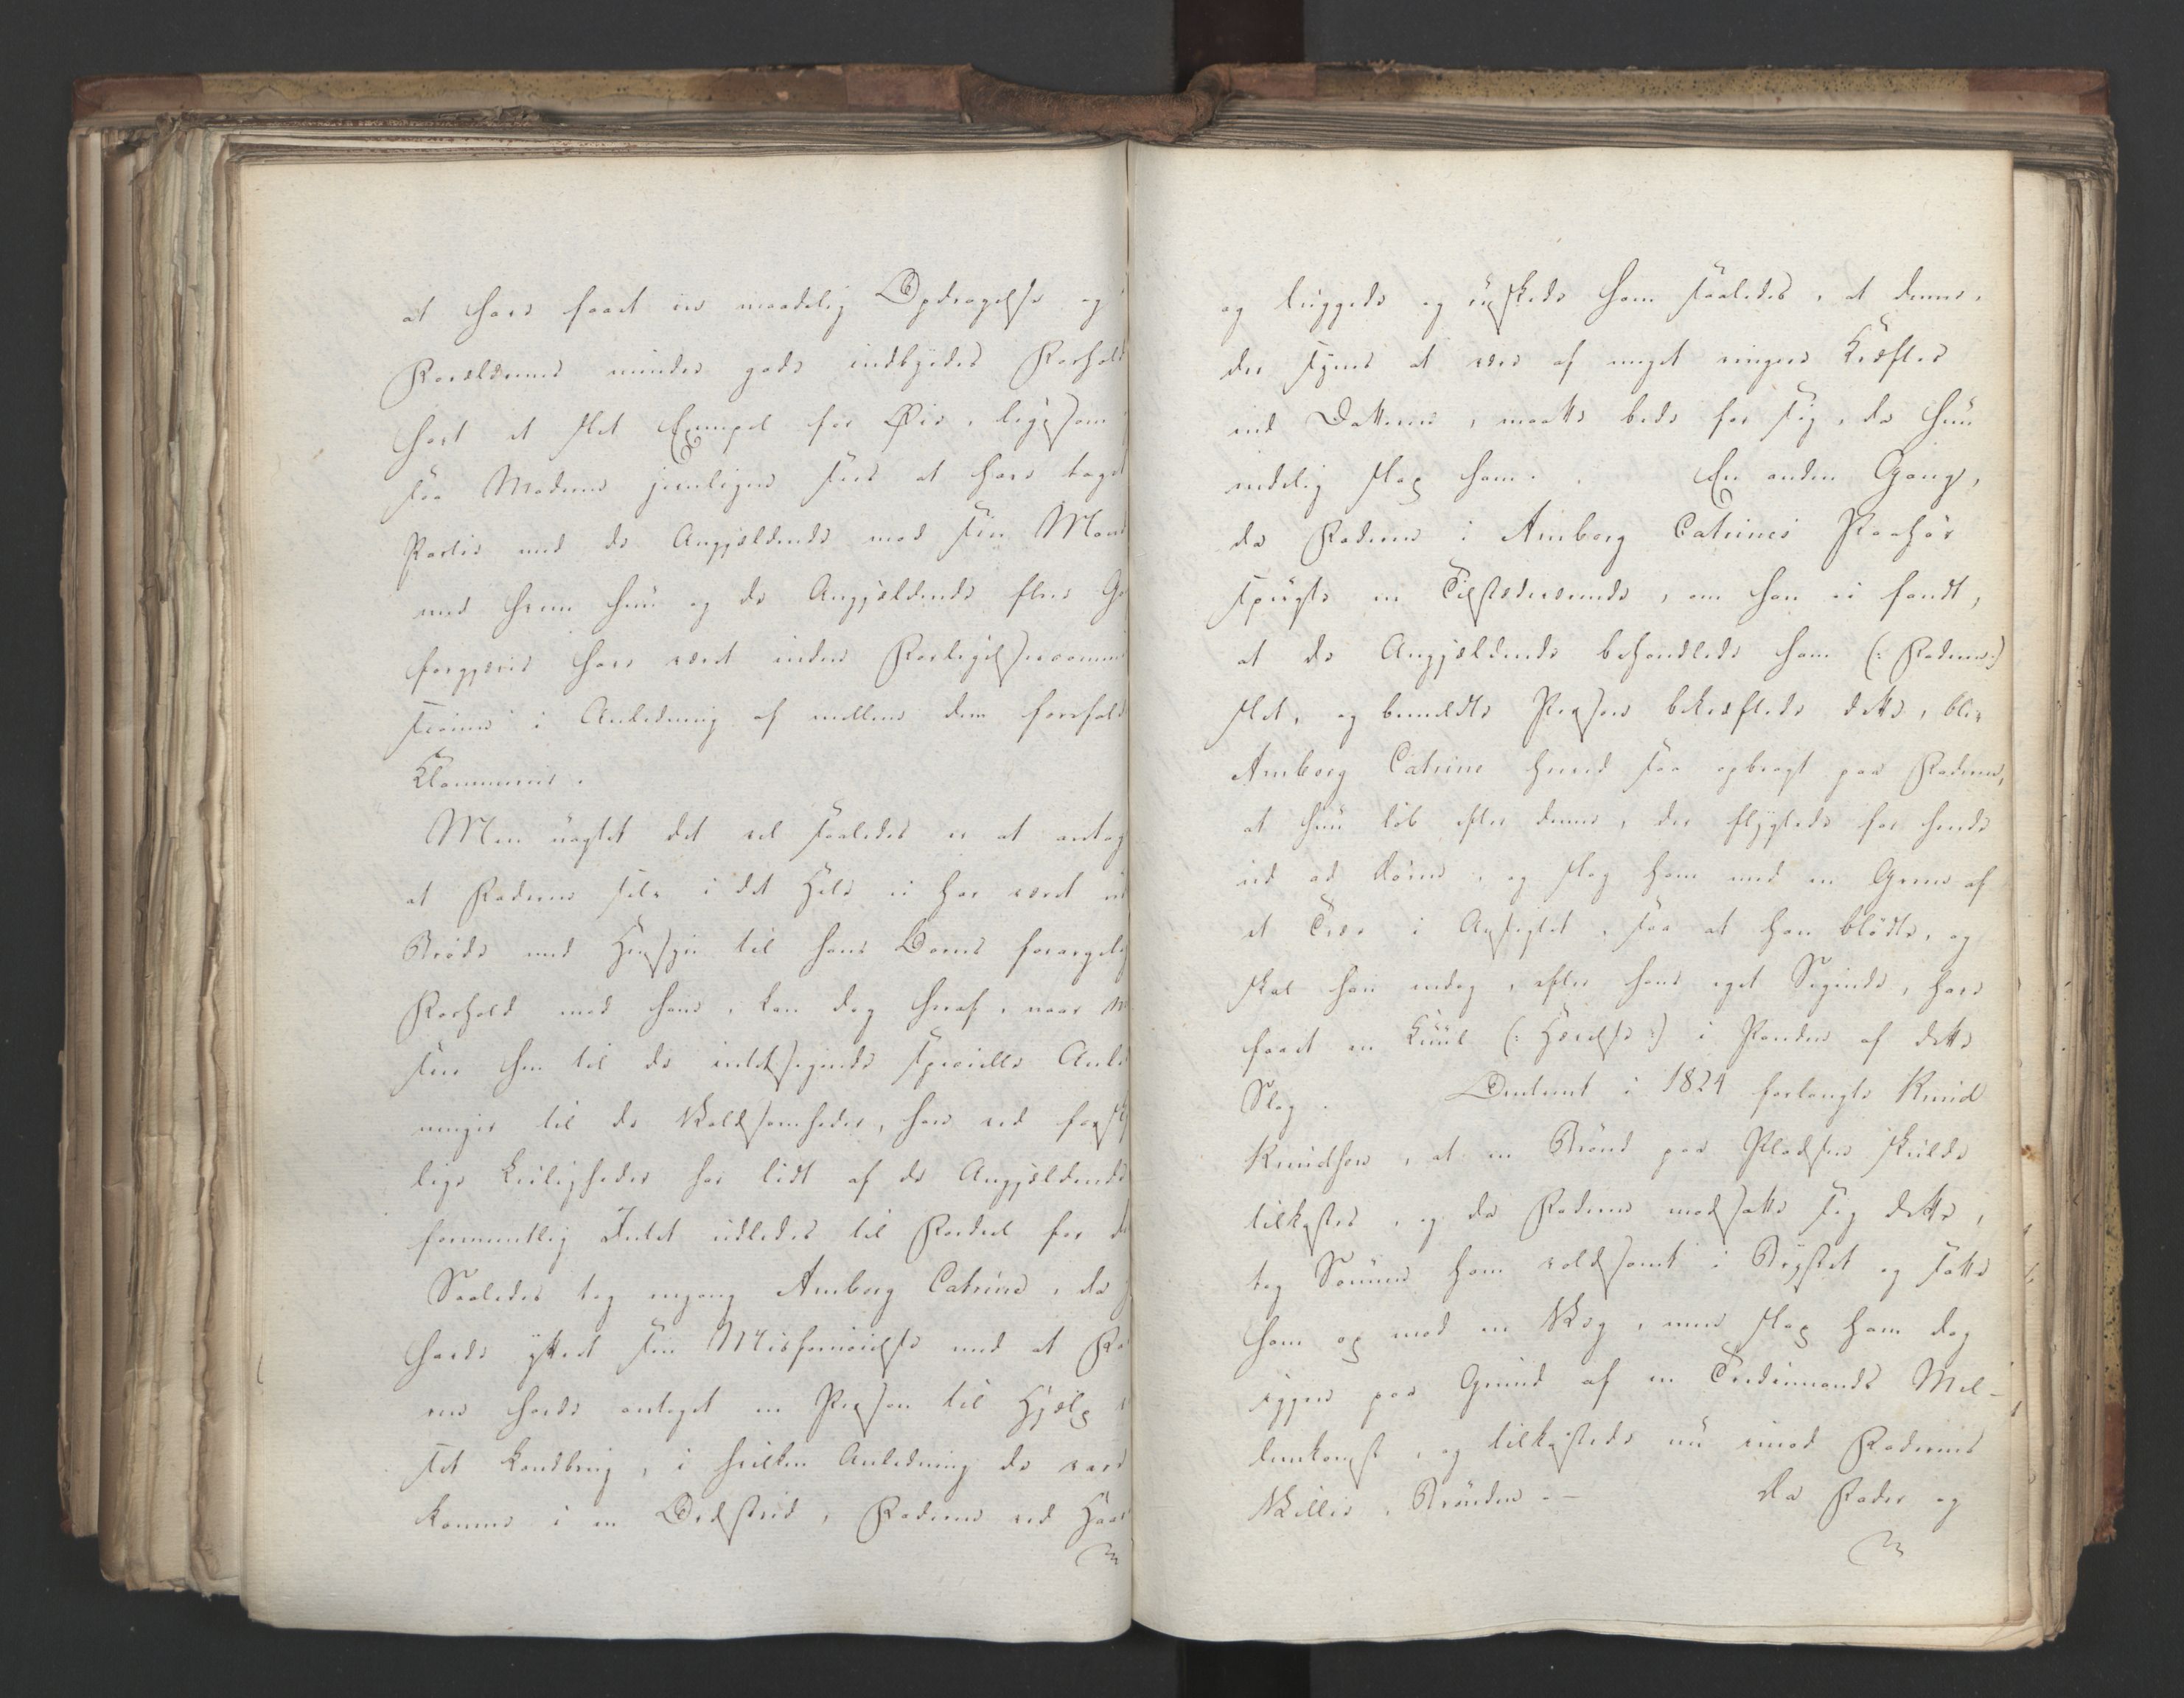 at have faaet en maadelig Opdragelse og
Forældrenes mindre gode indbyrdes Forhold
havt et slet Exempel for Øie, ligesom
saa Moderen jevnligen sees at have taget
Partie med de Angjældende mod sin Mand
med hvem hun og de Angjældende flere Ga
forgjæves have været inden Forligelsescommis
sionen i Anledning af mellem dem forefald
Klammerier.
Men uagtet det vel saaledes er at antag
at Faderen selv i det Hele ei har været ud
Brøde med Hensyn til hans Børns forargelig
Forhold mod ham, kan dog heraf, naar m
seer hen til de intetsigende specielle Anled
ninger til de Voldsomheder, han ved forskj
lige Leiligheder har lidt af de Angjældende
formentlig Intet udledes til Fordeel for d
Saaledes tog engang Amborg Catrine, da h
havde yttret sin Misfornøielse med at Fa
ren havde antaget en Person til Hjælp v
sit Landbrug, i hvilken Anledning de vare
komne i en Ordstrid, Faderen ved Haar
og luggede og ruskede ham saaledes, at denne,
der synes at være af meget ringere Kræfter
end Datteren, maatte bede for sig, da hun
endelig slap ham. En anden Gang,
da Faderen i Amborg Catrines Paahør
spurgte en Tilstædeværende, om han ei fandt,
at de Angjældende behandlede ham (: Faderen :)
slet, og bemeldte Person bekræftede dette, blev
Amborg Catrine herved saa opbragt paa Faderen,
at hun løb efter denne, der flygtede for hende
ud ad Døren, og slog ham med en Green af
et Træ i Ansigtet, saa at han blødte, og
skal han endog, efter hans eget Sigende, have
faaet en Kuul (: Hævelse :) i Panden af dette
Slag. Omtrent i 1824 forlangte Knud
Knudsen, at en Brønd paa Pladsen skulde
tilkastes, og da Faderen modsatte sig dette,
tog Sønnen ham voldsomt i Brystet og satte
ham op mod en Væg, men slap ham dog
igjen paa Grund af en Tredjemands Mel-
lemkomst, og tilkastede nu imod Faderens
Villie, Brønden. — Da Fader og